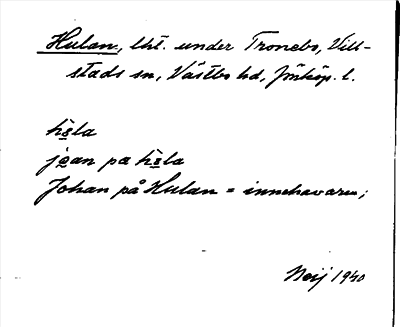 Hulan, lht. under Tronebo, Vill-
stads sn, Västbo hd, Jönköp. l.
hɵla
joan pa hɵla
Johan på Hulan = innehavaren;
Noij 1940